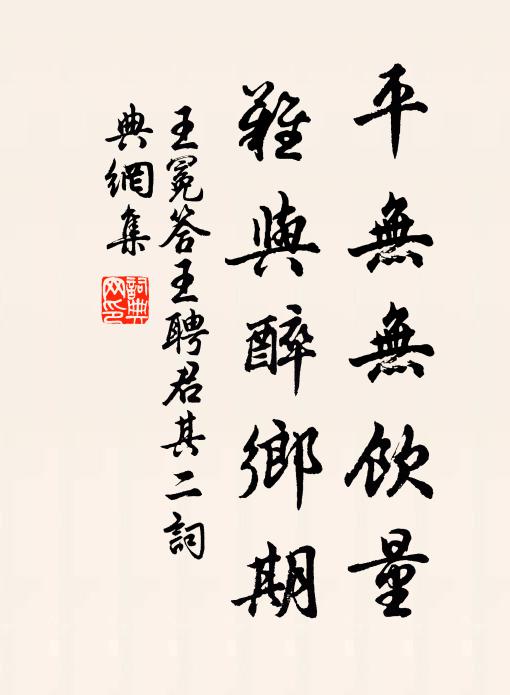 平無無飲量
難與醉鄉期
王冕答王聘君其二詞
典網集
詞典網印